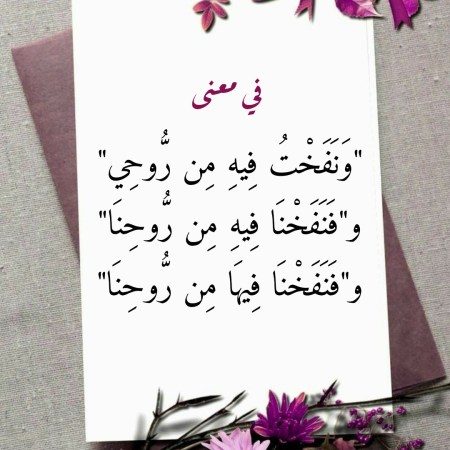 في معنى
"وَنَفَخْتُ فِيهِ مِن رُّوحِي"
و"فَنَفَخْنَا فِيهِ مِن رُّوحِنَا"
و"فَنَفَخْنَا فِيهَا مِن رُّوحِنَا"